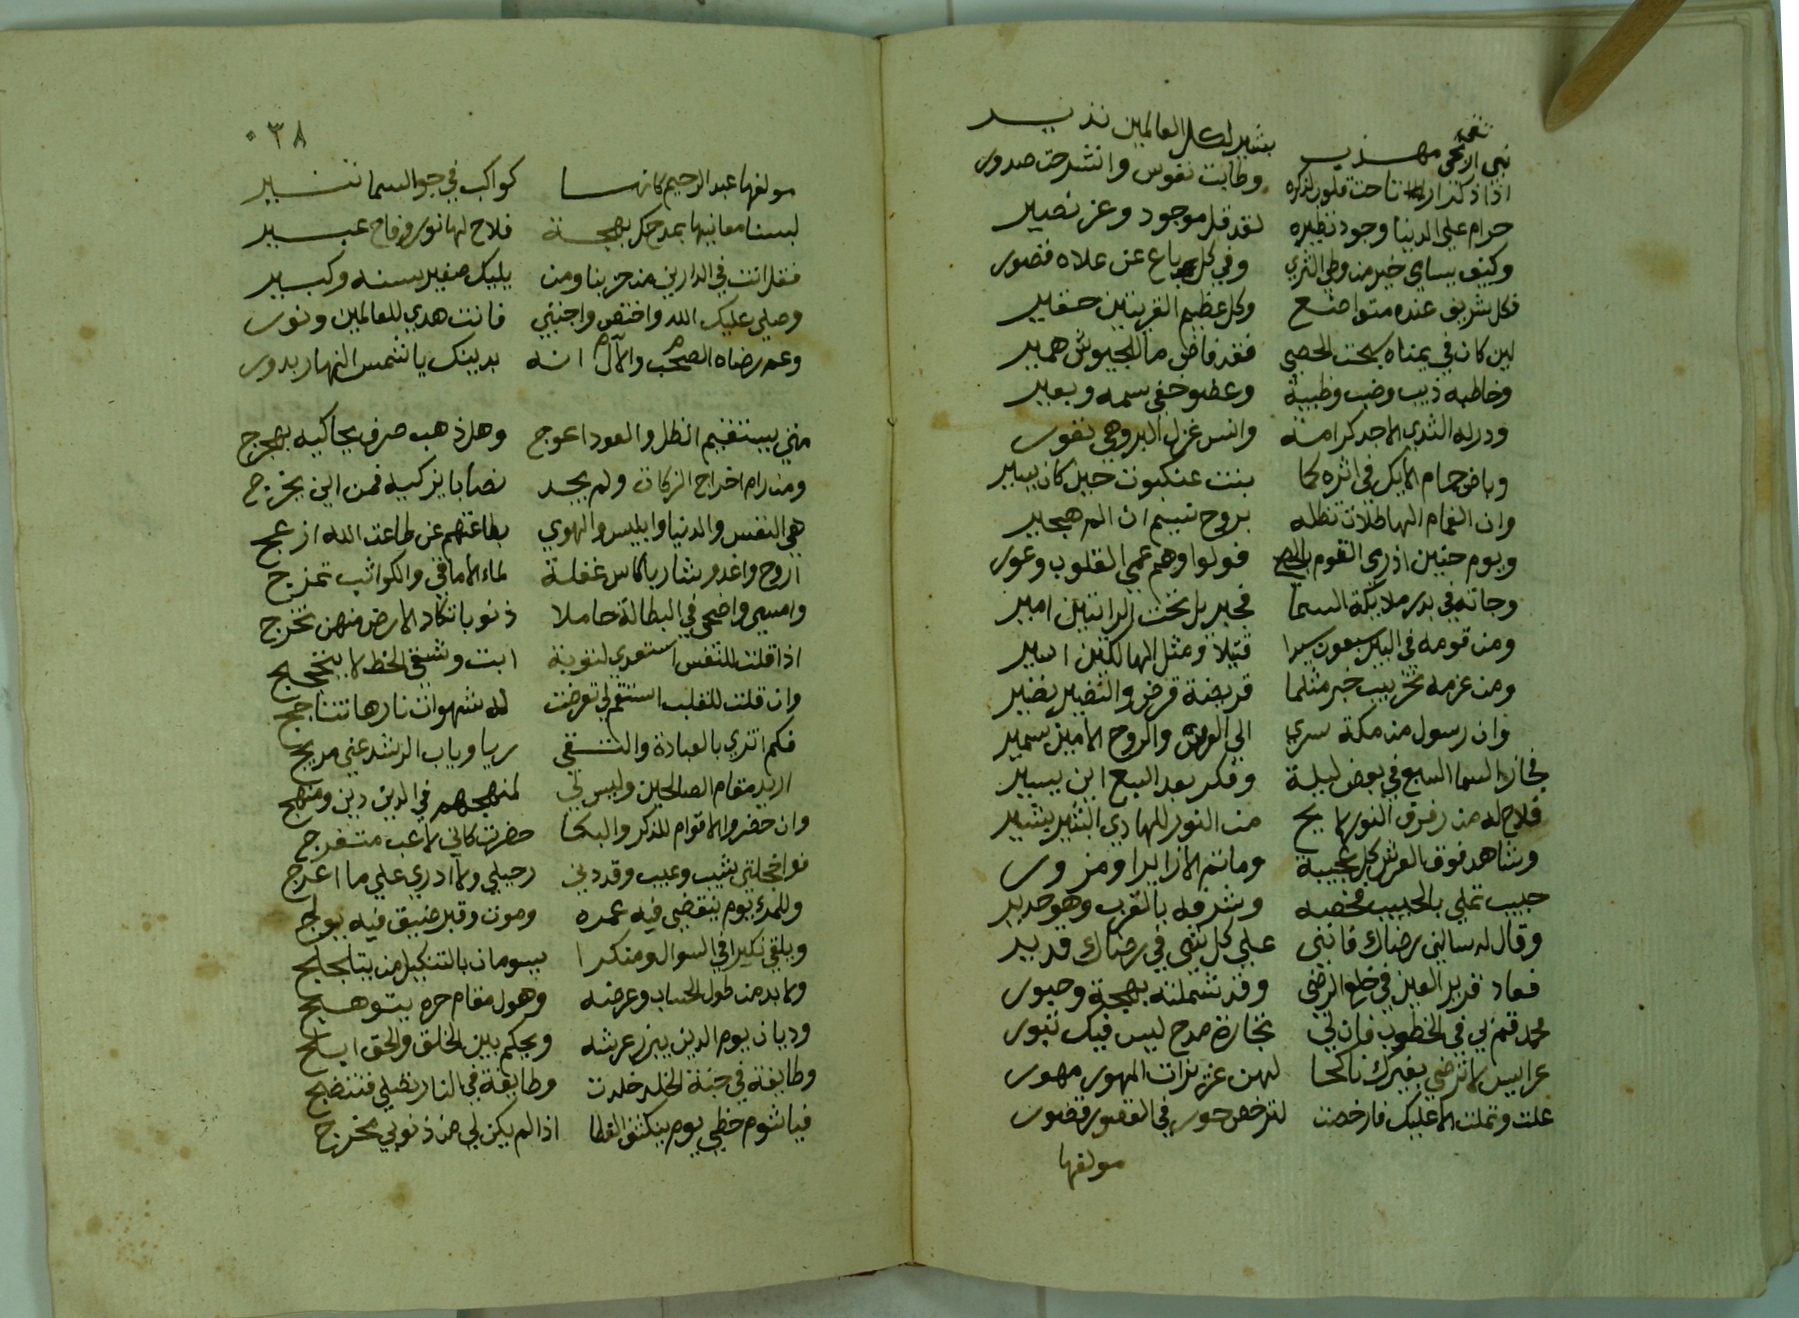 نبي تقي اريحي مهذب بشير لكل العالمين نذير
اذا ذكر ارتاحت قلوب لذكره وطابت نفوس وانشرحت صدور
حرام على الدنيا وجود نظيره لقد قل موجود وعز نضير
وكيف يسامى خير من وطي الثري وفي كل باع عن علاه قصور
فكل شريف عنده متواضع وكل عظيم القريتين حقير
لين كان في يمناه سبحت الحصي فقد فاض ما للجيوش همير
وخاطبه ذيب وضب وظبية وعضو خفي سمه وبعير
ودر له الثدي الاجد كرامة وانس غزل البر وهي نفور
وباض حمام الايك في اثره كما بنت عنكبوت حيل كان يسير
وان الغمام الهاطلات تظله بروح نسيم ان الم هجير
ويوم حنين اذ رمي القوم بالحصي فولوا وهم عمي القلوب وعور
وجاته في بدر ملايكة السما فجبريل تحت الراتين امير
ومن قومه في البير سبعون سيدا قتيلا ومثل الهالكين اسير
ومن عزمه تخريب خيبر مثلما قريضة قرض والنضير نضير
وان رسول من مكة سري الي العرش والروح الامين سمير
فجاز السما السبع في بعض ليلة وفكر بعد السبع اين يسير
فلاح له من رفرف النور لايح من النور للهادي البشير بشير
وشاهد فوق العرش كل عجيبة وما تم الا زايرا ومزور
حبيب تملي بالحبيب فخصه وشرفه بالقرب وهو جدير
وقال له سالني رضاك فانني علي كل شي في رضاك قدير
فعاد قرير العين في خلع الرضي وقد شملته بهجة وحبور
محمد قم بي في الخطوب فان لي تجارة مدح ليس فيك تبور
عرايس لا ترضي بغيرك ناكحا لهن عزيزات المهور مهور
علت وتملت الا عليك فارخصت لترخص حور في القصور قصور
مولفها
٠٣٨
مولفها عبد الرحيم كانها كواكب في جو السما تنير
لبسنا معانيها بمدحك بهجة فلاح لها نور وفاح عبير
فقل انت في الدارين من حزبنا ومن يليك صغير سنه وكبير
وصلي عليك الله واختص واجتبي فانت هدي للعالمين ونور
وعم رضاه الصحب والآل انه بدينك يا شمس النهار بدور
متي يستقيم الظل والعود اعوج وهل ذهب صرف يحاكيه بهرج
ومن رام اخراج الزكاة ولم يجد نصابا يزكيه فمن اين يخرج
هي النفس والدنيا وابليس والهوي بطاعتهم عن طاعت الله ازعج
اروح واغدو شارب كاس غفلة لماء الاماقي والكواثب تمزج
وامسي واضحي في البطالة حاملا ذنوبا تكاد الارض منهن تخرج
اذا قلت للنفس استعدي لتوبة ابت وشقي الحظ لا يتحجج
وان قلت للقلب استقم لي تعرضت له شهوات نارها تتاجج
فكم اتزي بالعبادة والتقي ريا وباب الرشد عني مريج
اريد مقام الصالحين وليس لي لمنهجهم في الدين دين ومنهج
وان حضر الاقوام للذكر والبكا حضرت كاني لاعب متفرج
فوا خجلتي شيب وعيب وقد دني رحيلي ولا ادري علي ما اعرج
وللمرء يوم ينقضي فيه عمره وموت وقبر ضيق فيه يولج
ويلقي نكيرا في السوال ومنكرا يسومان بالتنكيل من يتلجلج
ولا بد من طول الحساب وعرضه وهول مقام حره يتوهج
وديان يوم الدين يبرز عرشه ويحكم بين الخلق والحق ابلج
وطايفة في جنة الخلد خلدت وطايفة في النار تصلي فتنضج
فيا شوم حظي يوم ينكشف الغطا اذا لم يكن لي من ذنوبي مخرج